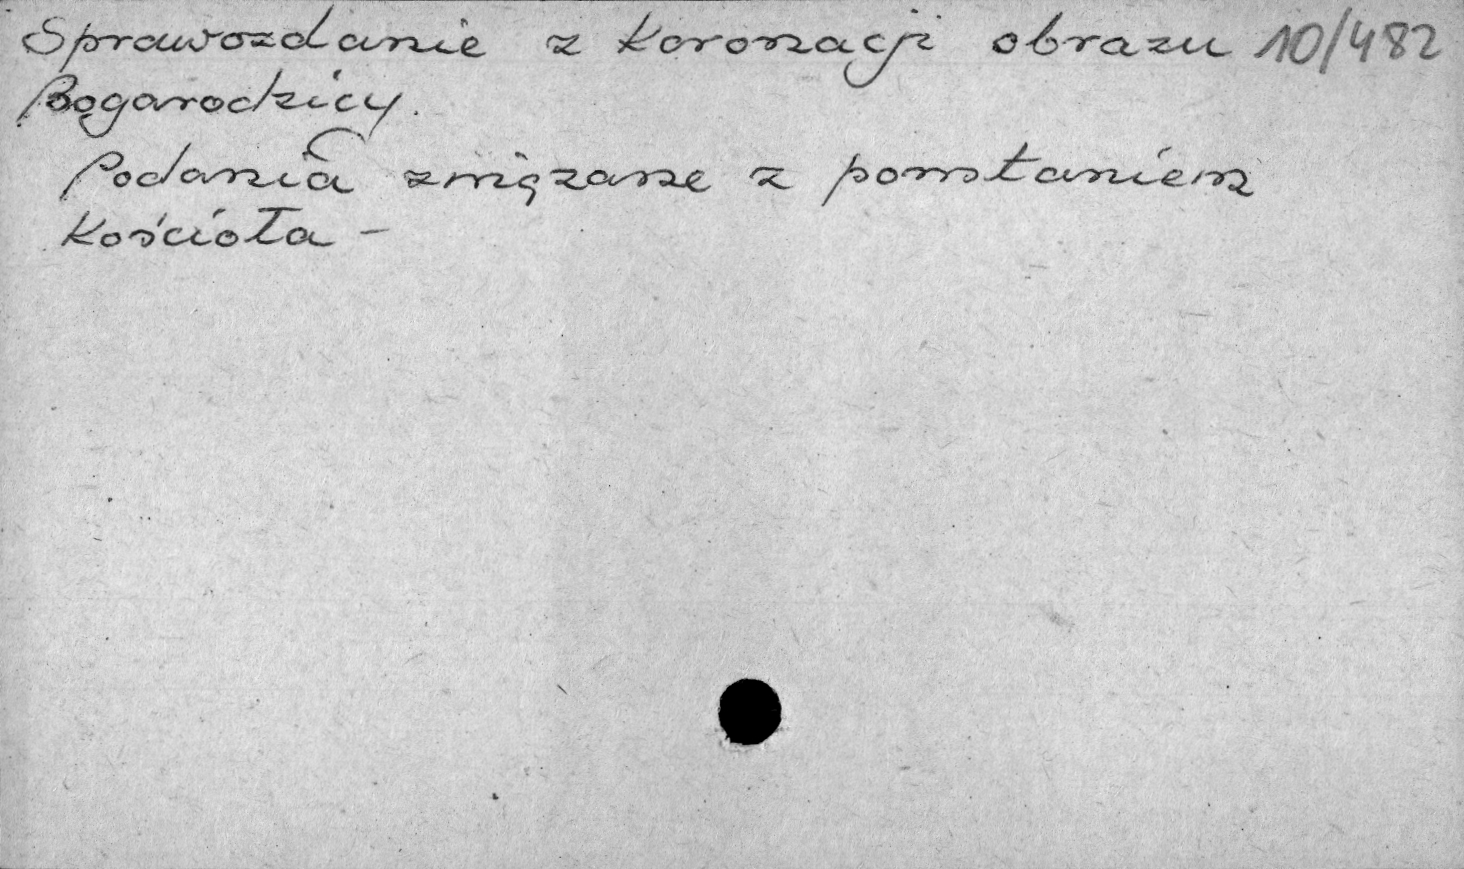 Sprawozdanie z koronacji obrazu 10/482
Bogarodzicy.
Podania związane z powstaniem
Kościoła -